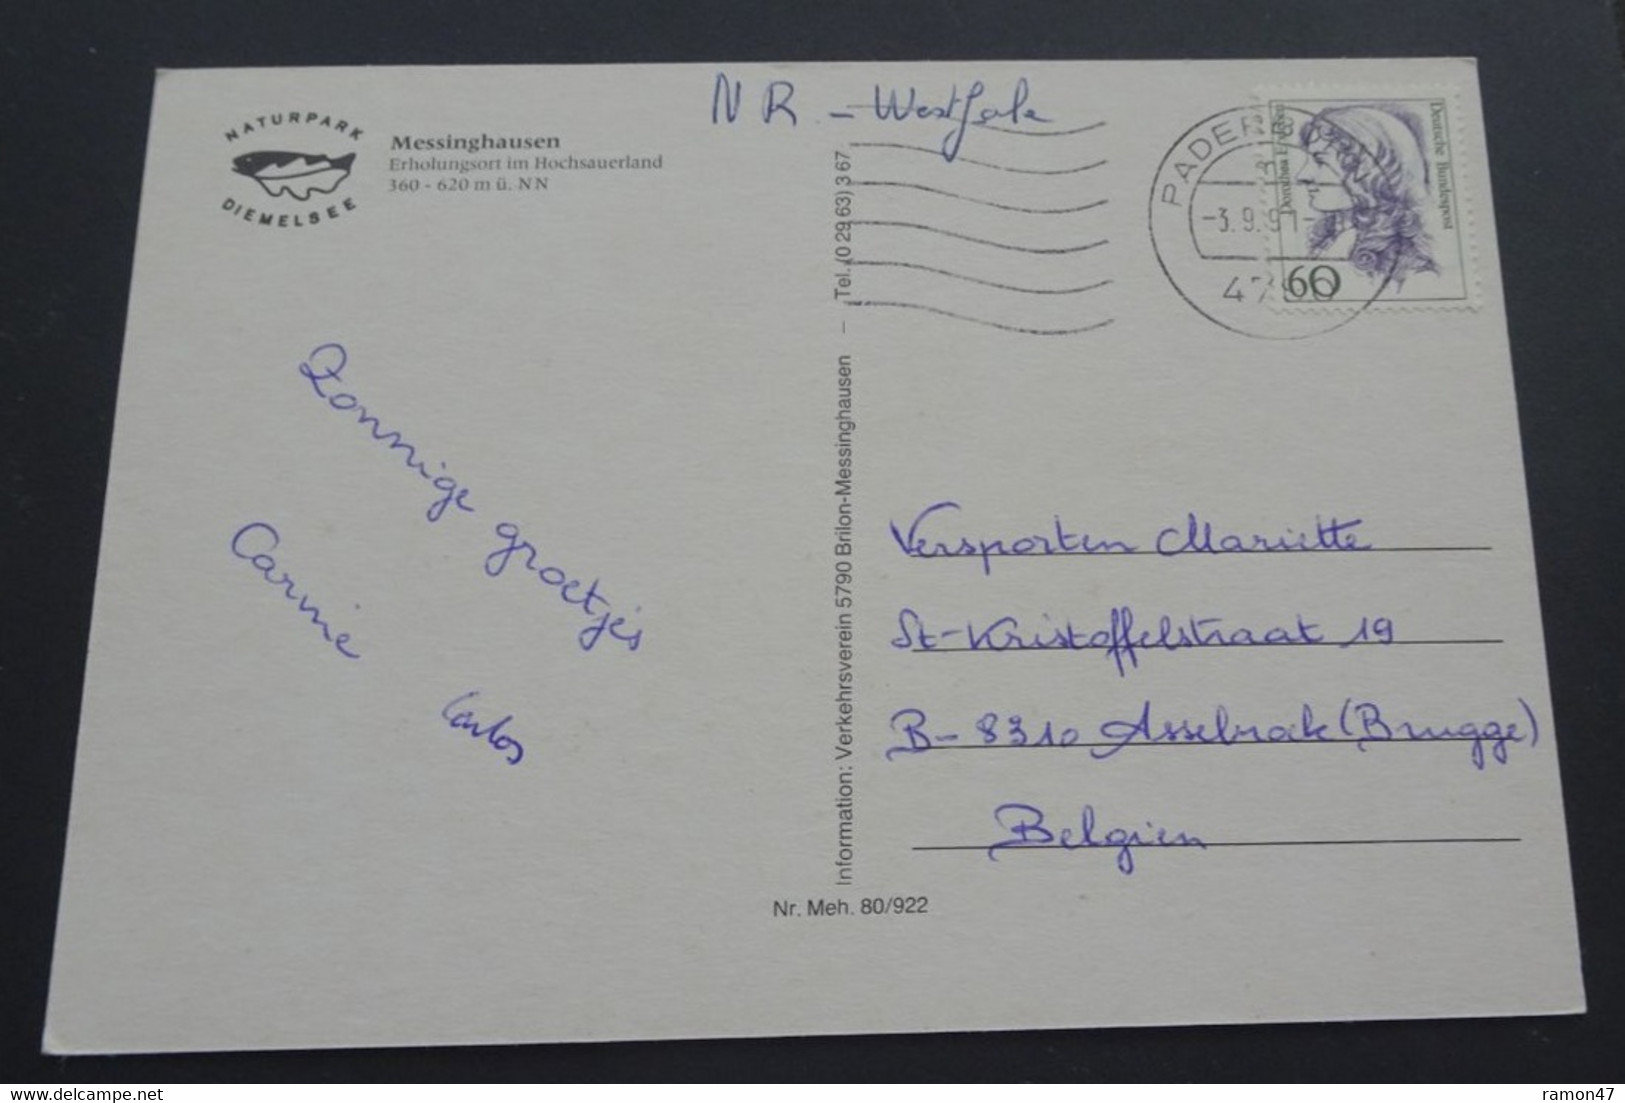 NR - Westfale
NATURPARK
DIEMELSEE
Messinghausen
Erholungsort im Hochsauerland
360 - 620 m ü. NN
Zonnige groetjes
Carine
Carlos
Information: Verkehrsverein 5790 Brilon-Messinghausen – Tel. (0 29 63) 3 67
Nr. Meh. 80/922
PADERBORN
-3. 9. 91-
Deutsche Bundespost
60
Versporten Mariette
St-Kristoffelstraat 19
B-8310 Assebroek (Brugge)
Belgien
ramon47